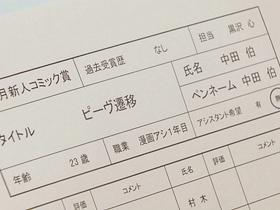 月新人コミック賞 過去受賞歴 なし 担当 黒沢 心
タイトル ピーヴ遷移 氏名 中田 伯
ペンネーム 中田 伯
年齢 23歳 職業 漫画アシ1年目 アシスタント希望 有 無
評価 コメント 氏名 評価 コメント
村木